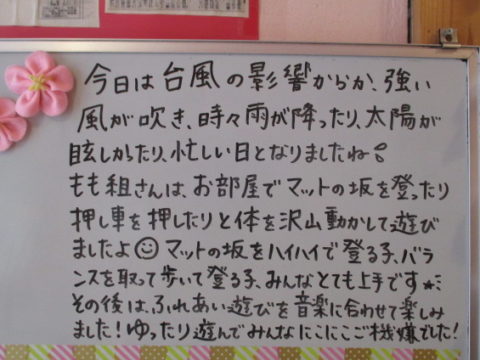 今日は台風の影響からか、強い
風が吹き、時々雨が降ったり、太陽が
眩しかったり、忙しい日となりましたね!
もも組さんは、お部屋でマットの坂を登ったり
押し車を押したりと体を沢山動かして遊び
ましたよ☺ マットの坂をハイハイで登る子、バラ
ンスを取って歩いて登る子、みんなとても上手です★ミ
その後は、ふれあい遊びを音楽に合わせて楽しみ
ました!ゆったり遊んでみんなにこにこご機嫌でした!